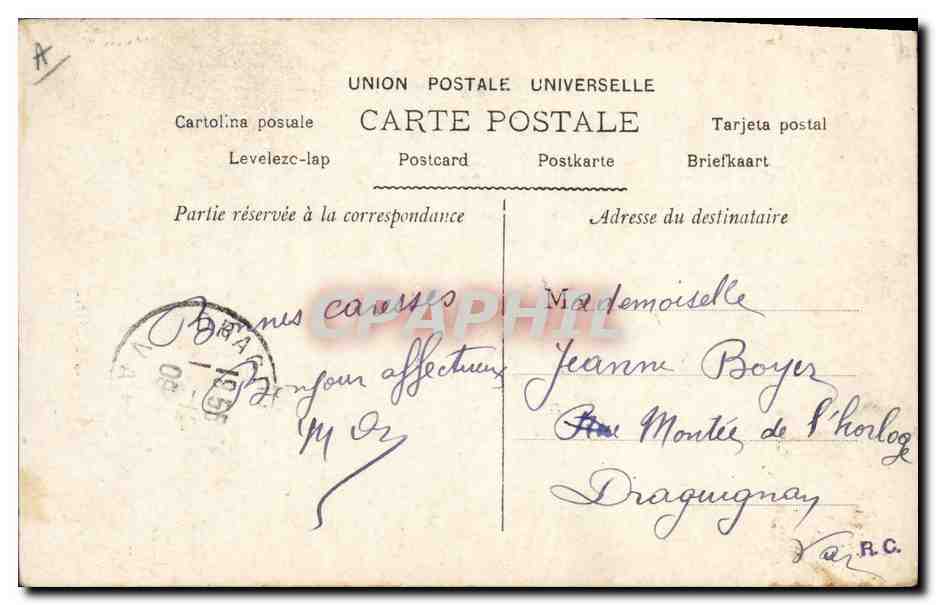 A
UNION POSTALE UNIVERSELLE
Cartolina postale CARTE POSTALE Tarjeta postal
Levelezo-lap Postcard Postkarte Briefkaart
Partie réservée à la correspondance
Bonnes caresses
Bonjour affectueux
Adresse du destinataire
Mademoiselle
Jeanne Boyer
Rue Montée de l'horloge
Draguignan
Var
R.C.
CPAPHIL